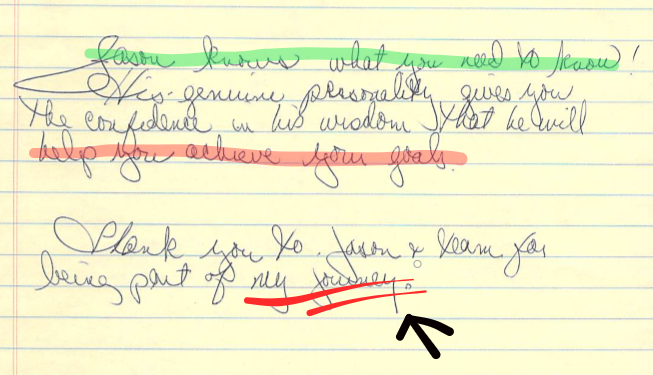 Jason knows what you need to know!
His genuine personality gives you
the confidence in his wisdom that he will
help you achieve your goals.
Thank you to Jason & team for
being part of my journey.